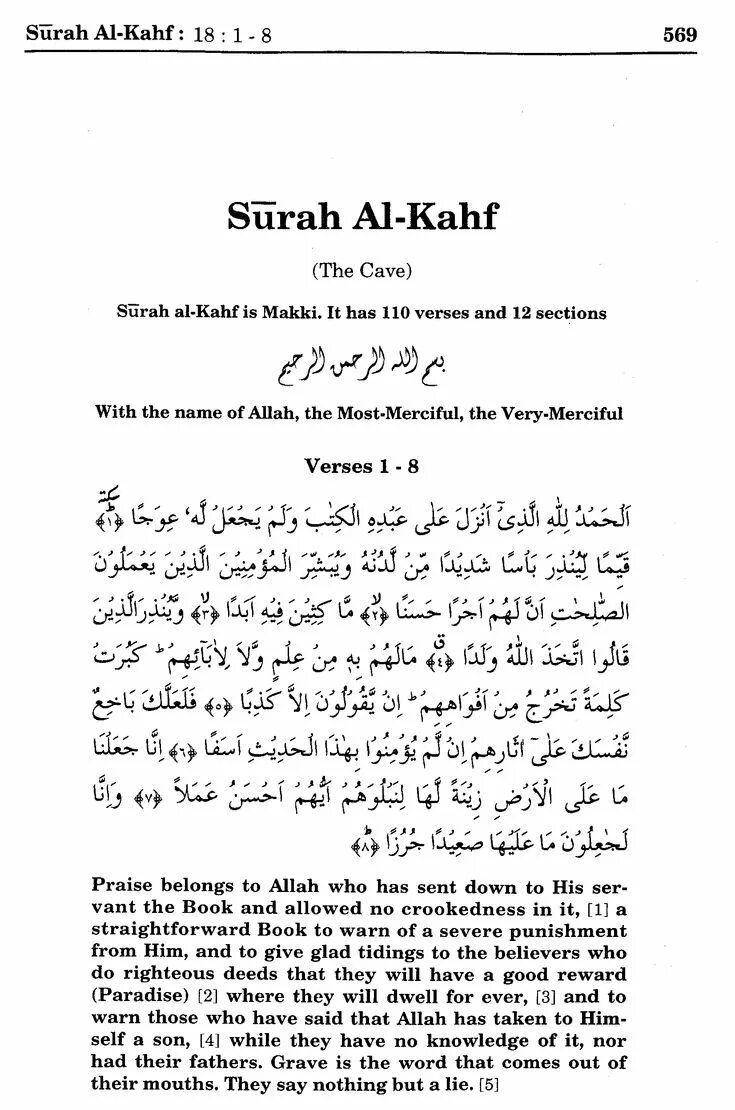 Sūrah Al-Kahf : 18 : 1 - 8 569
Sūrah Al-Kahf
(The Cave)
Sūrah al-Kahf is Makki. It has 110 verses and 12 sections
بسم الله الرحمن الرحيم
With the name of Allah, the Most-Merciful, the Very-Merciful
Verses 1 - 8
اَلْحَمْدُ لِلّٰهِ الَّذِیْٓ اَنْزَلَ عَلٰی عَبْدِهِ الْکِتٰبَ وَلَمْ یَجْعَلْ لَّهٗ عِوَجًا ﴿۱﴾ سکتة
قَیِّمًا لِّیُنْذِرَ بَاْسًا شَدِیْدًا مِّنْ لَّدُنْهُ وَیُبَشِّرَ الْمُؤْمِنِیْنَ الَّذِیْنَ یَعْمَلُوْنَ
الصّٰلِحٰتِ اَنَّ لَهُمْ اَجْرًا حَسَنًا ﴿۲﴾ۙ مَّا کِثِیْنَ فِیْهِ اَبَدًا ﴿۳﴾ۙ وَّیُنْذِرَ الَّذِیْنَ
قَالُوا اتَّخَذَ اللّٰهُ وَلَدًا ﴿٤﴾ۗ مَالَهُمْ بِهٖ مِنْ عِلْمٍ وَّلَا لِاٰبَآئِهِمْ ؕ کَبُرَتْ
کَلِمَةً تَخْرُجُ مِنْ اَفْوَاهِهِمْ ؕ اِنْ یَّقُوْلُوْنَ اِلَّا کَذِبًا ﴿٥﴾ فَلَعَلَّکَ بَاخِعٌ
نَّفْسَکَ عَلٰٓی اٰثَارِهِمْ اِنْ لَّمْ یُؤْمِنُوْا بِهٰذَا الْحَدِیْثِ اَسَفًا ﴿٦﴾ اِنَّا جَعَلْنَا
مَا عَلَی الْاَرْضِ زِیْنَةً لَّهَا لِنَبْلُوَهُمْ اَیُّهُمْ اَحْسَنُ عَمَلًا ﴿۷﴾ وَاِنَّا
لَجٰعِلُوْنَ مَا عَلَیْهَا صَعِیْدًا جُرُزًا ﴿۸﴾ؕ
Praise belongs to Allah who has sent down to His ser-
vant the Book and allowed no crookedness in it, [1] a
straightforward Book to warn of a severe punishment
from Him, and to give glad tidings to the believers who
do righteous deeds that they will have a good reward
(Paradise) [2] where they will dwell for ever, [3] and to
warn those who have said that Allah has taken to Him-
self a son, [4] while they have no knowledge of it, nor
had their fathers. Grave is the word that comes out of
their mouths. They say nothing but a lie. [5]